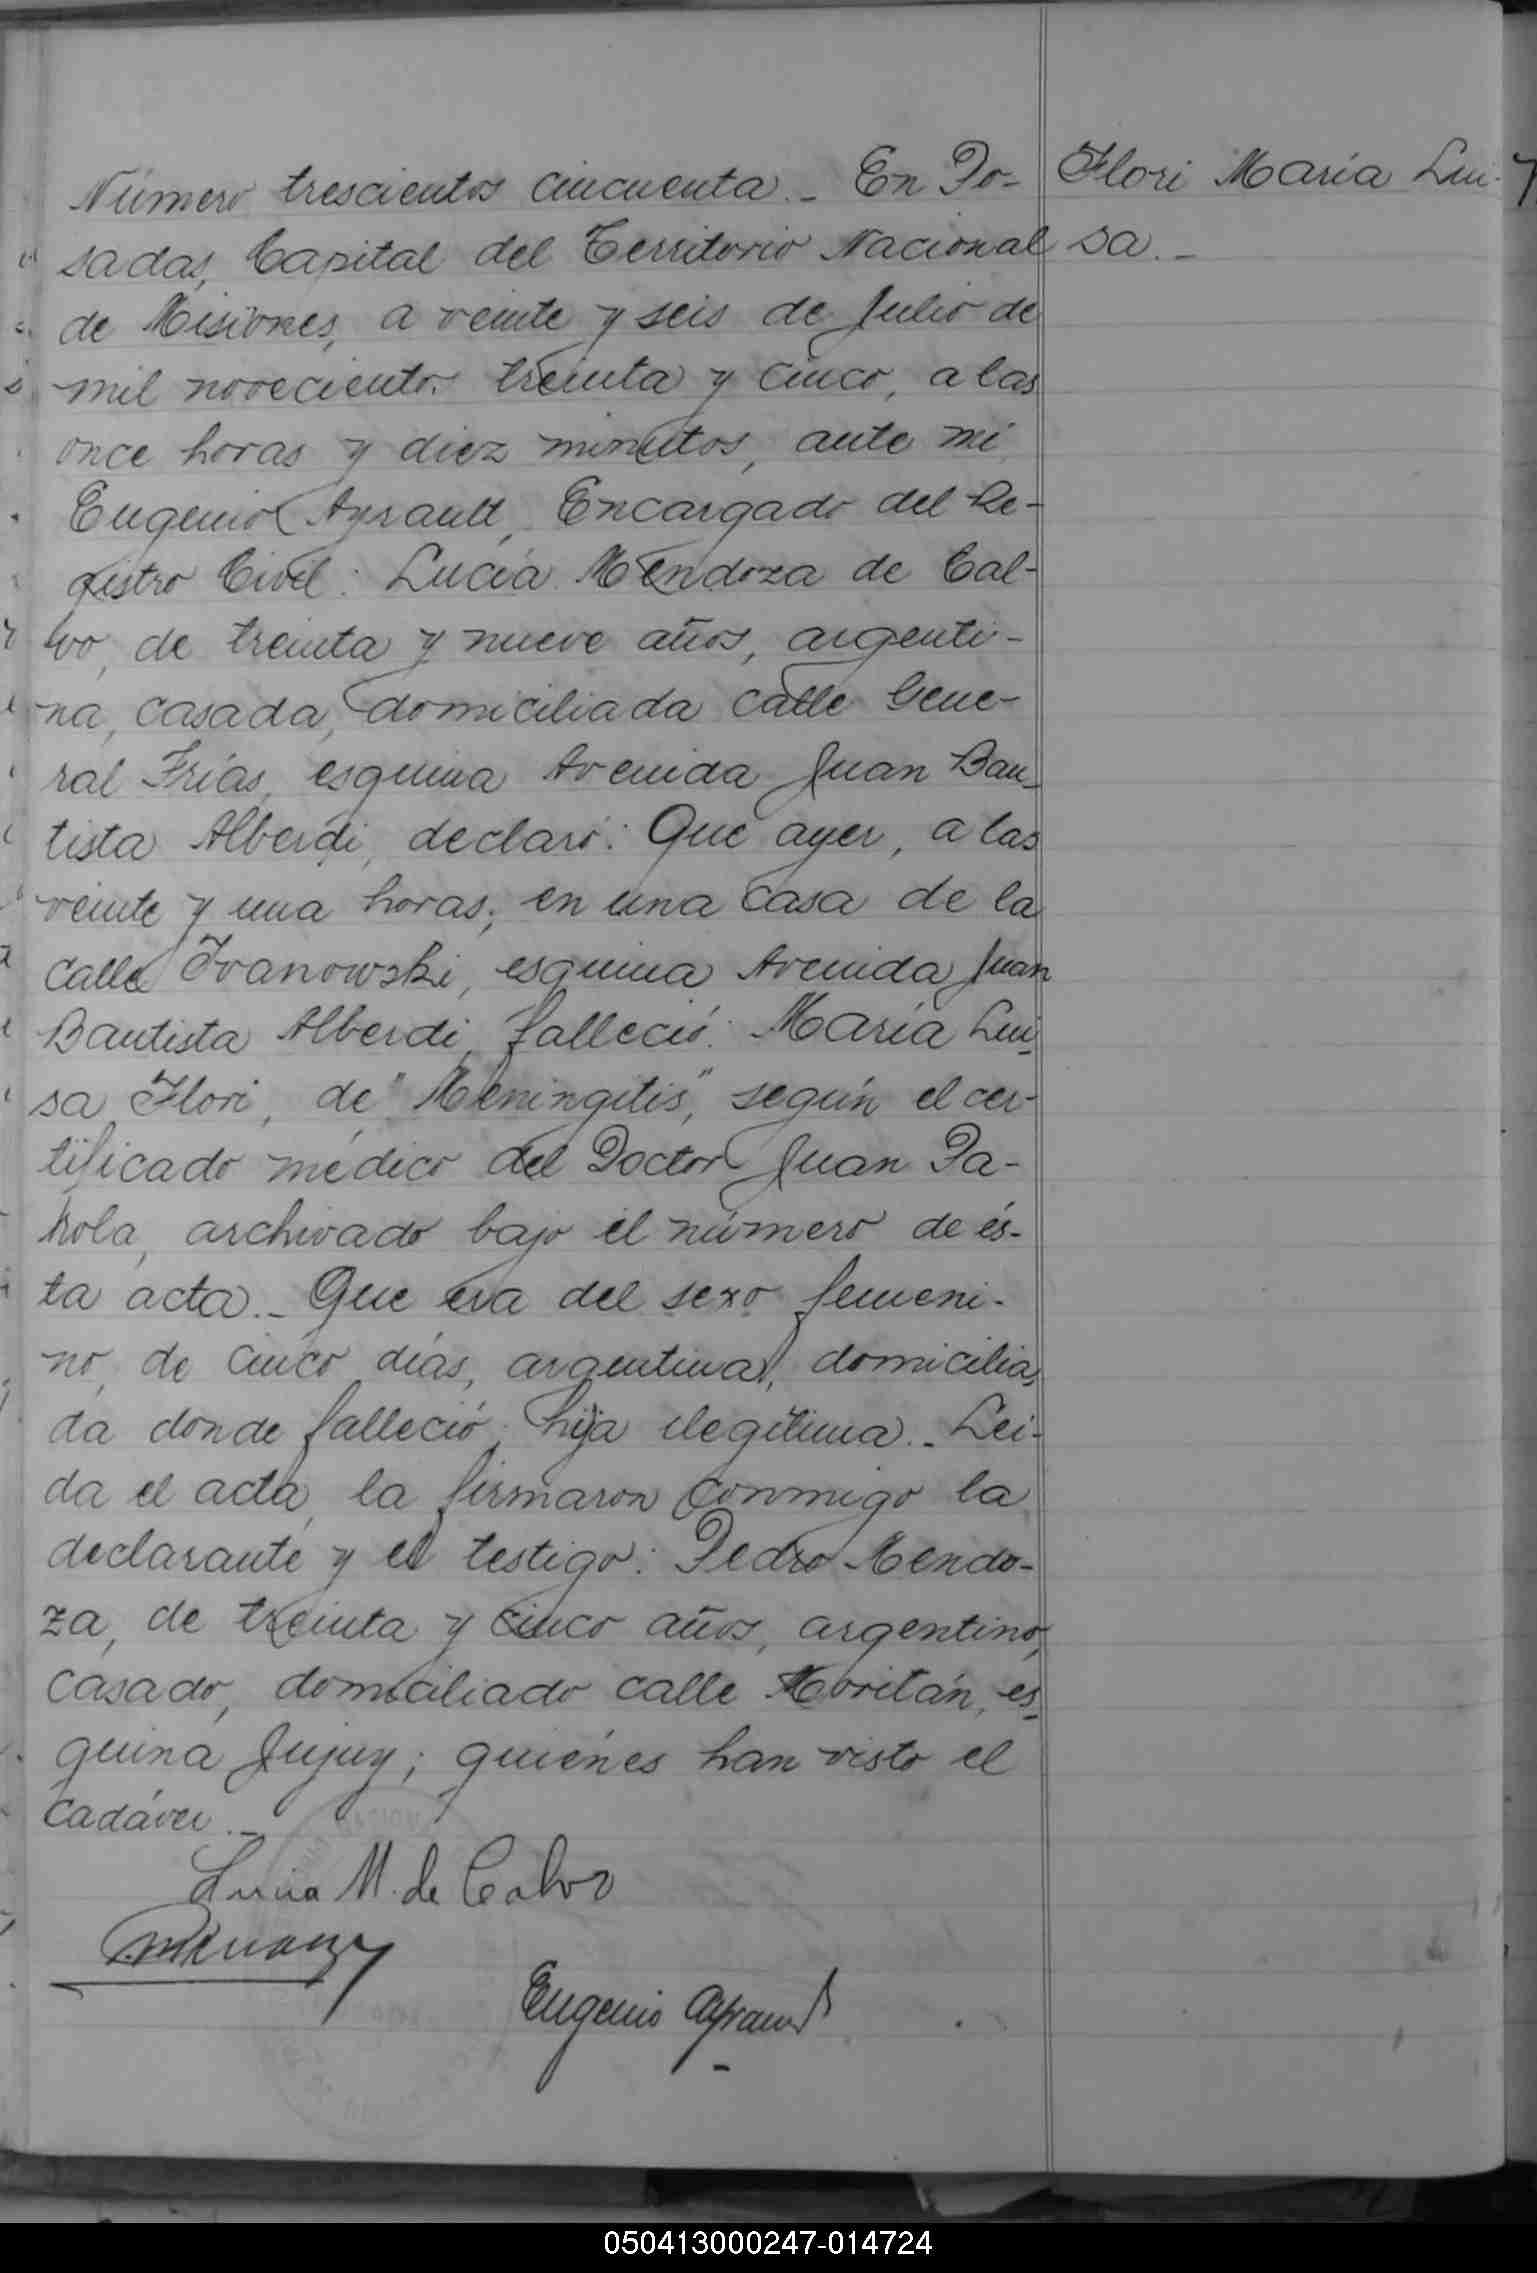 Número trescientos cincuenta.- En Po-
sadas, Capital del Territorio Nacional
de Misiones, a veinte y seis de Julio de
mil novecientos treinta y cinco, a las
once horas y diez minutos, ante mi
Eugenio Ayrault, Encargado del Re-
gistro Civil: Lucía Mendoza de Cal-
vo, de treinta y nueve años, argenti-
na, casada, domiciliada calle Gene-
ral Frías, esquina Avenida Juan Bau-
tista Alberdi, declaró: Que ayer, a las
veinte y una horas, en una casa de la
calle Ivanowski, esquina Avenida Juan
Bautista Alberdi, falleció: María Lui-
sa Flori, de "Meningitis", según el cer-
tificado médico del Doctor Juan Pa-
rola, archivado bajo el número de és-
ta acta.- Que era del sexo femeni-
no, de cinco días, argentina, domicilia-
da donde falleció, hija ilegítima.- Lei-
da el acta, la firmaron conmigo la
declarante y el testigo: Pedro Mendo-
za, de treinta y cinco años, argentino,
casado, domiciliado calle Moritán, es-
quina Jujuy; quiénes han visto el
cadáver.-
Lucia M. de Calvo
Eugenio Ayrault
Flori María Lui-
sa.-
050413000247-014724